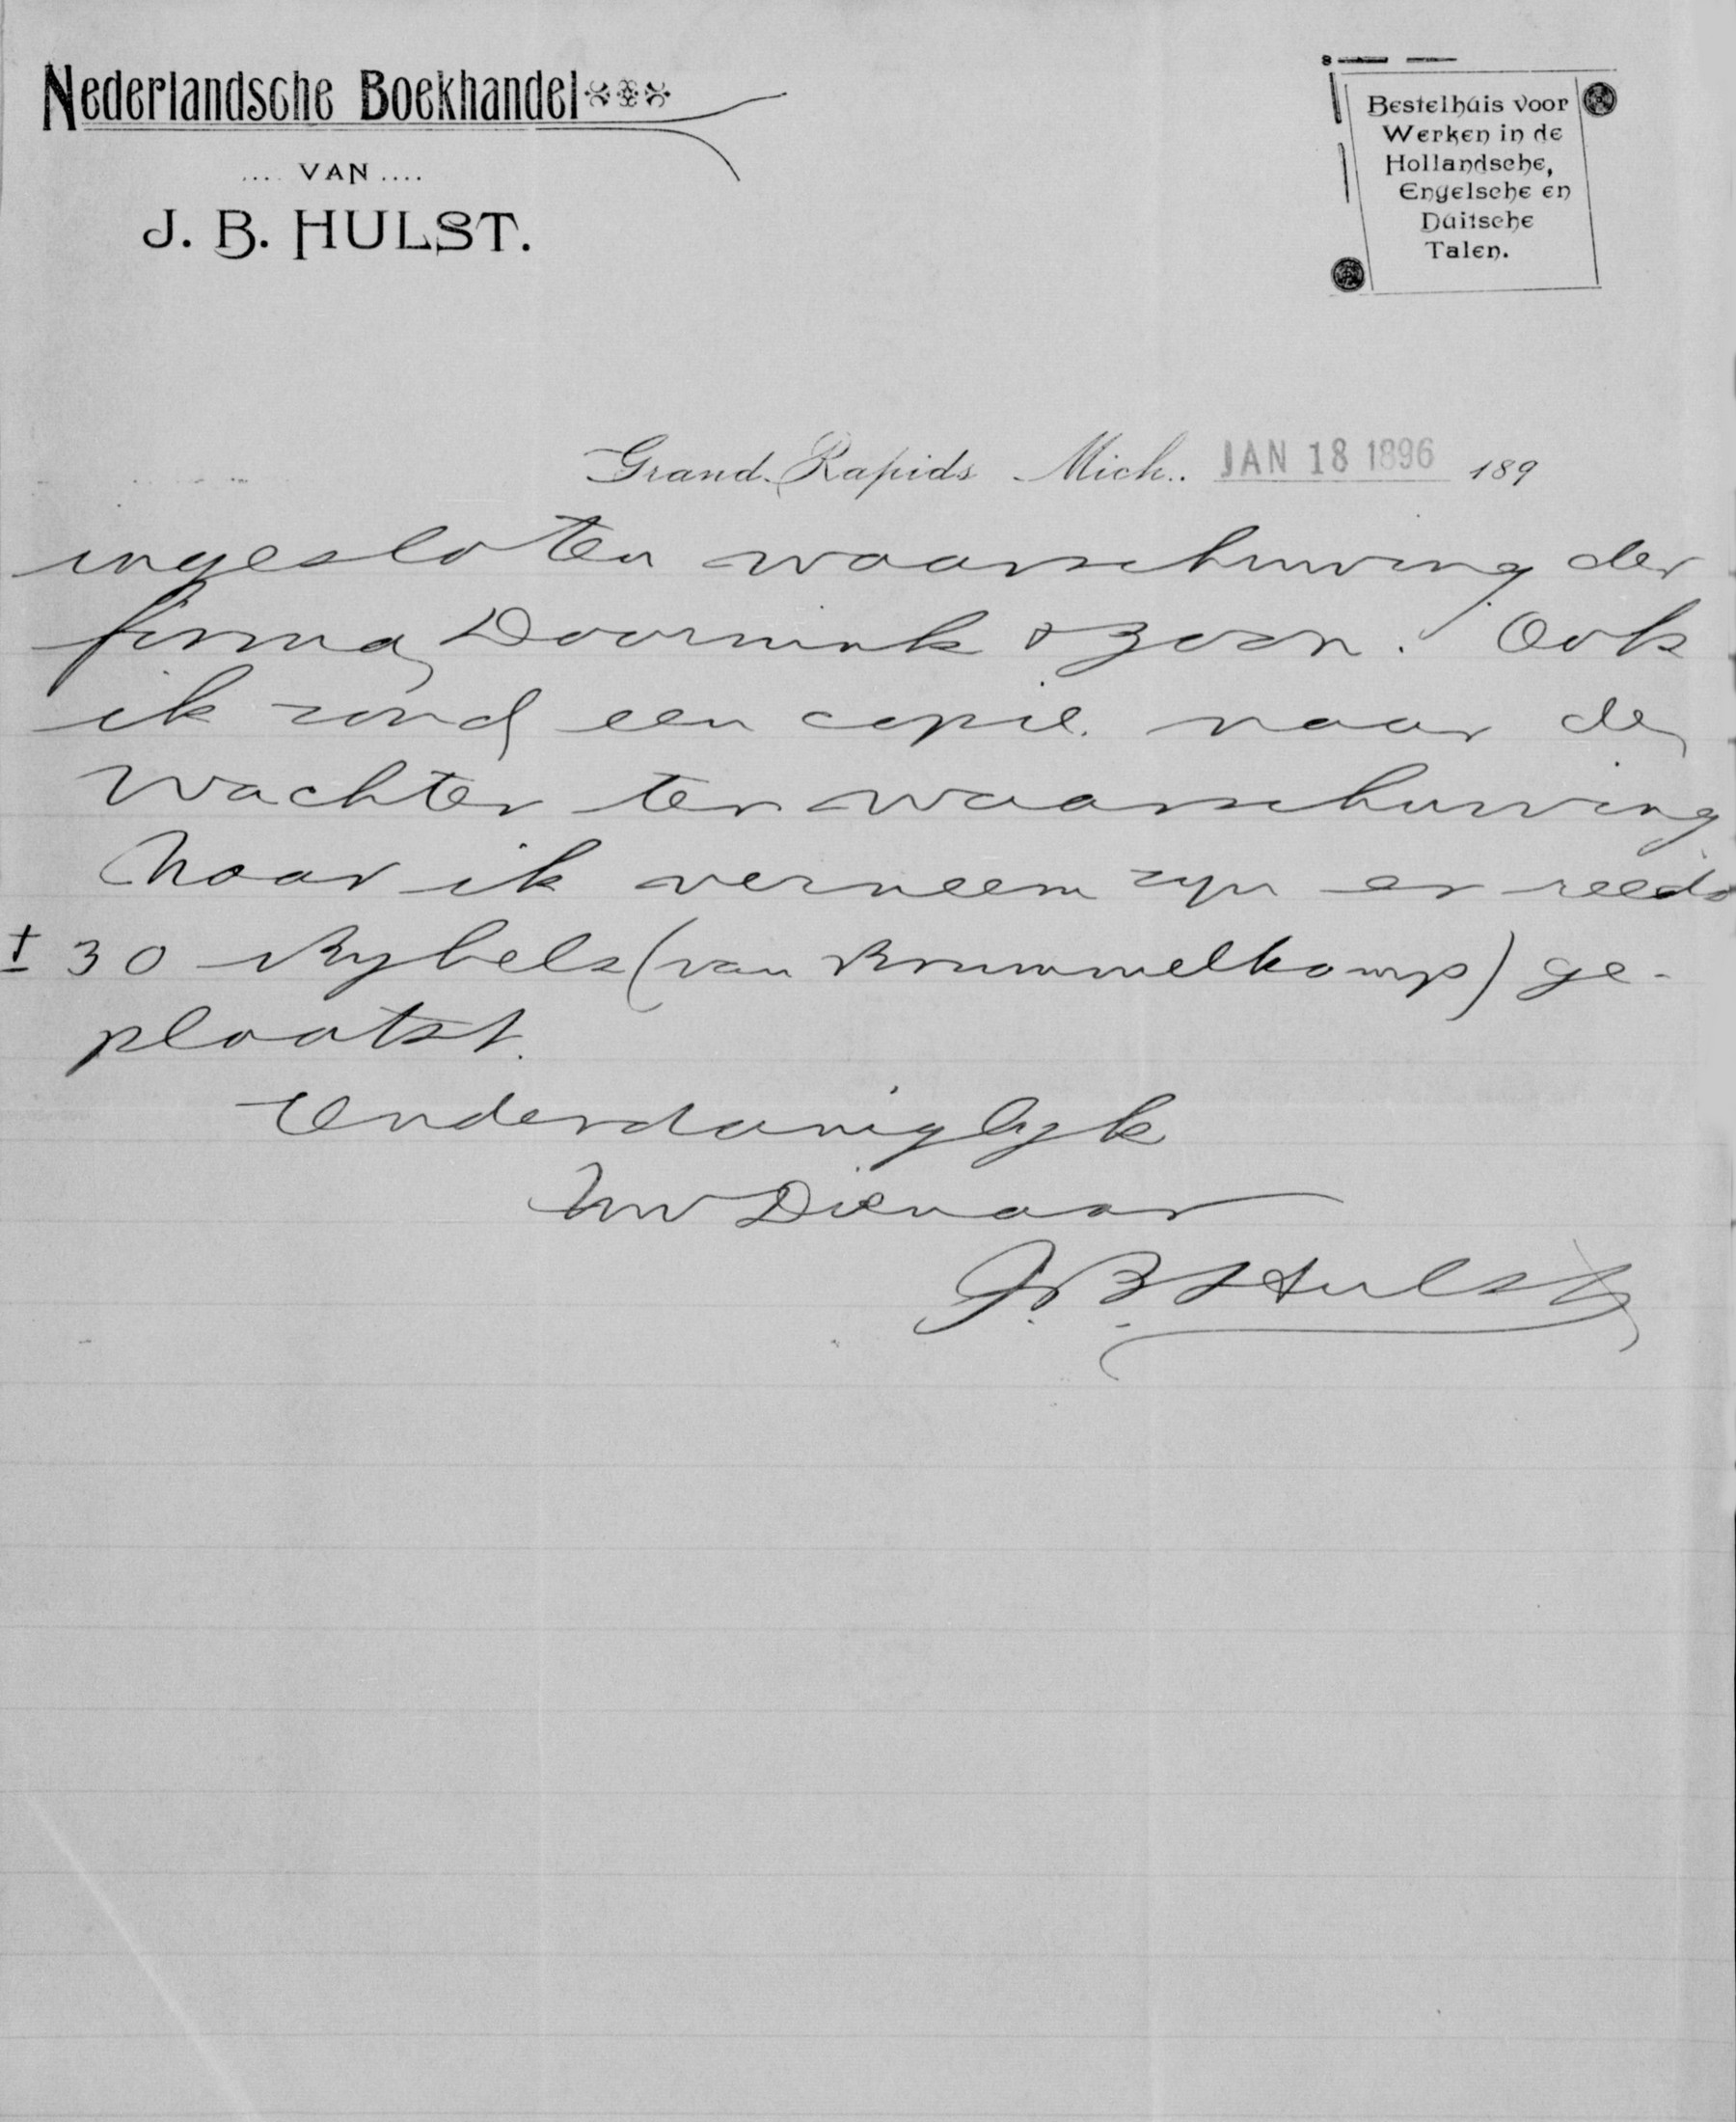 Nederlandsche Boekhandel
.... VAN ....
J. B. HULST.
Bestelhuis voor
Werken in de
Hollandsche,
Engelsche en
Duitsche
Talen.
Grand Rapids Mich.. JAN 18 1896 189
ingesloten waarschuwing der
firma Doornink & Zoon. Ook
ik zond een copie naar de
Wachter ter waarschuwing
Naar ik verneem zyn er reeds
± 30 Bybels (van Brummelkamp) ge-
plaatst.
Onderdaniglyk
Uw Dienaar
J. B. Hulst